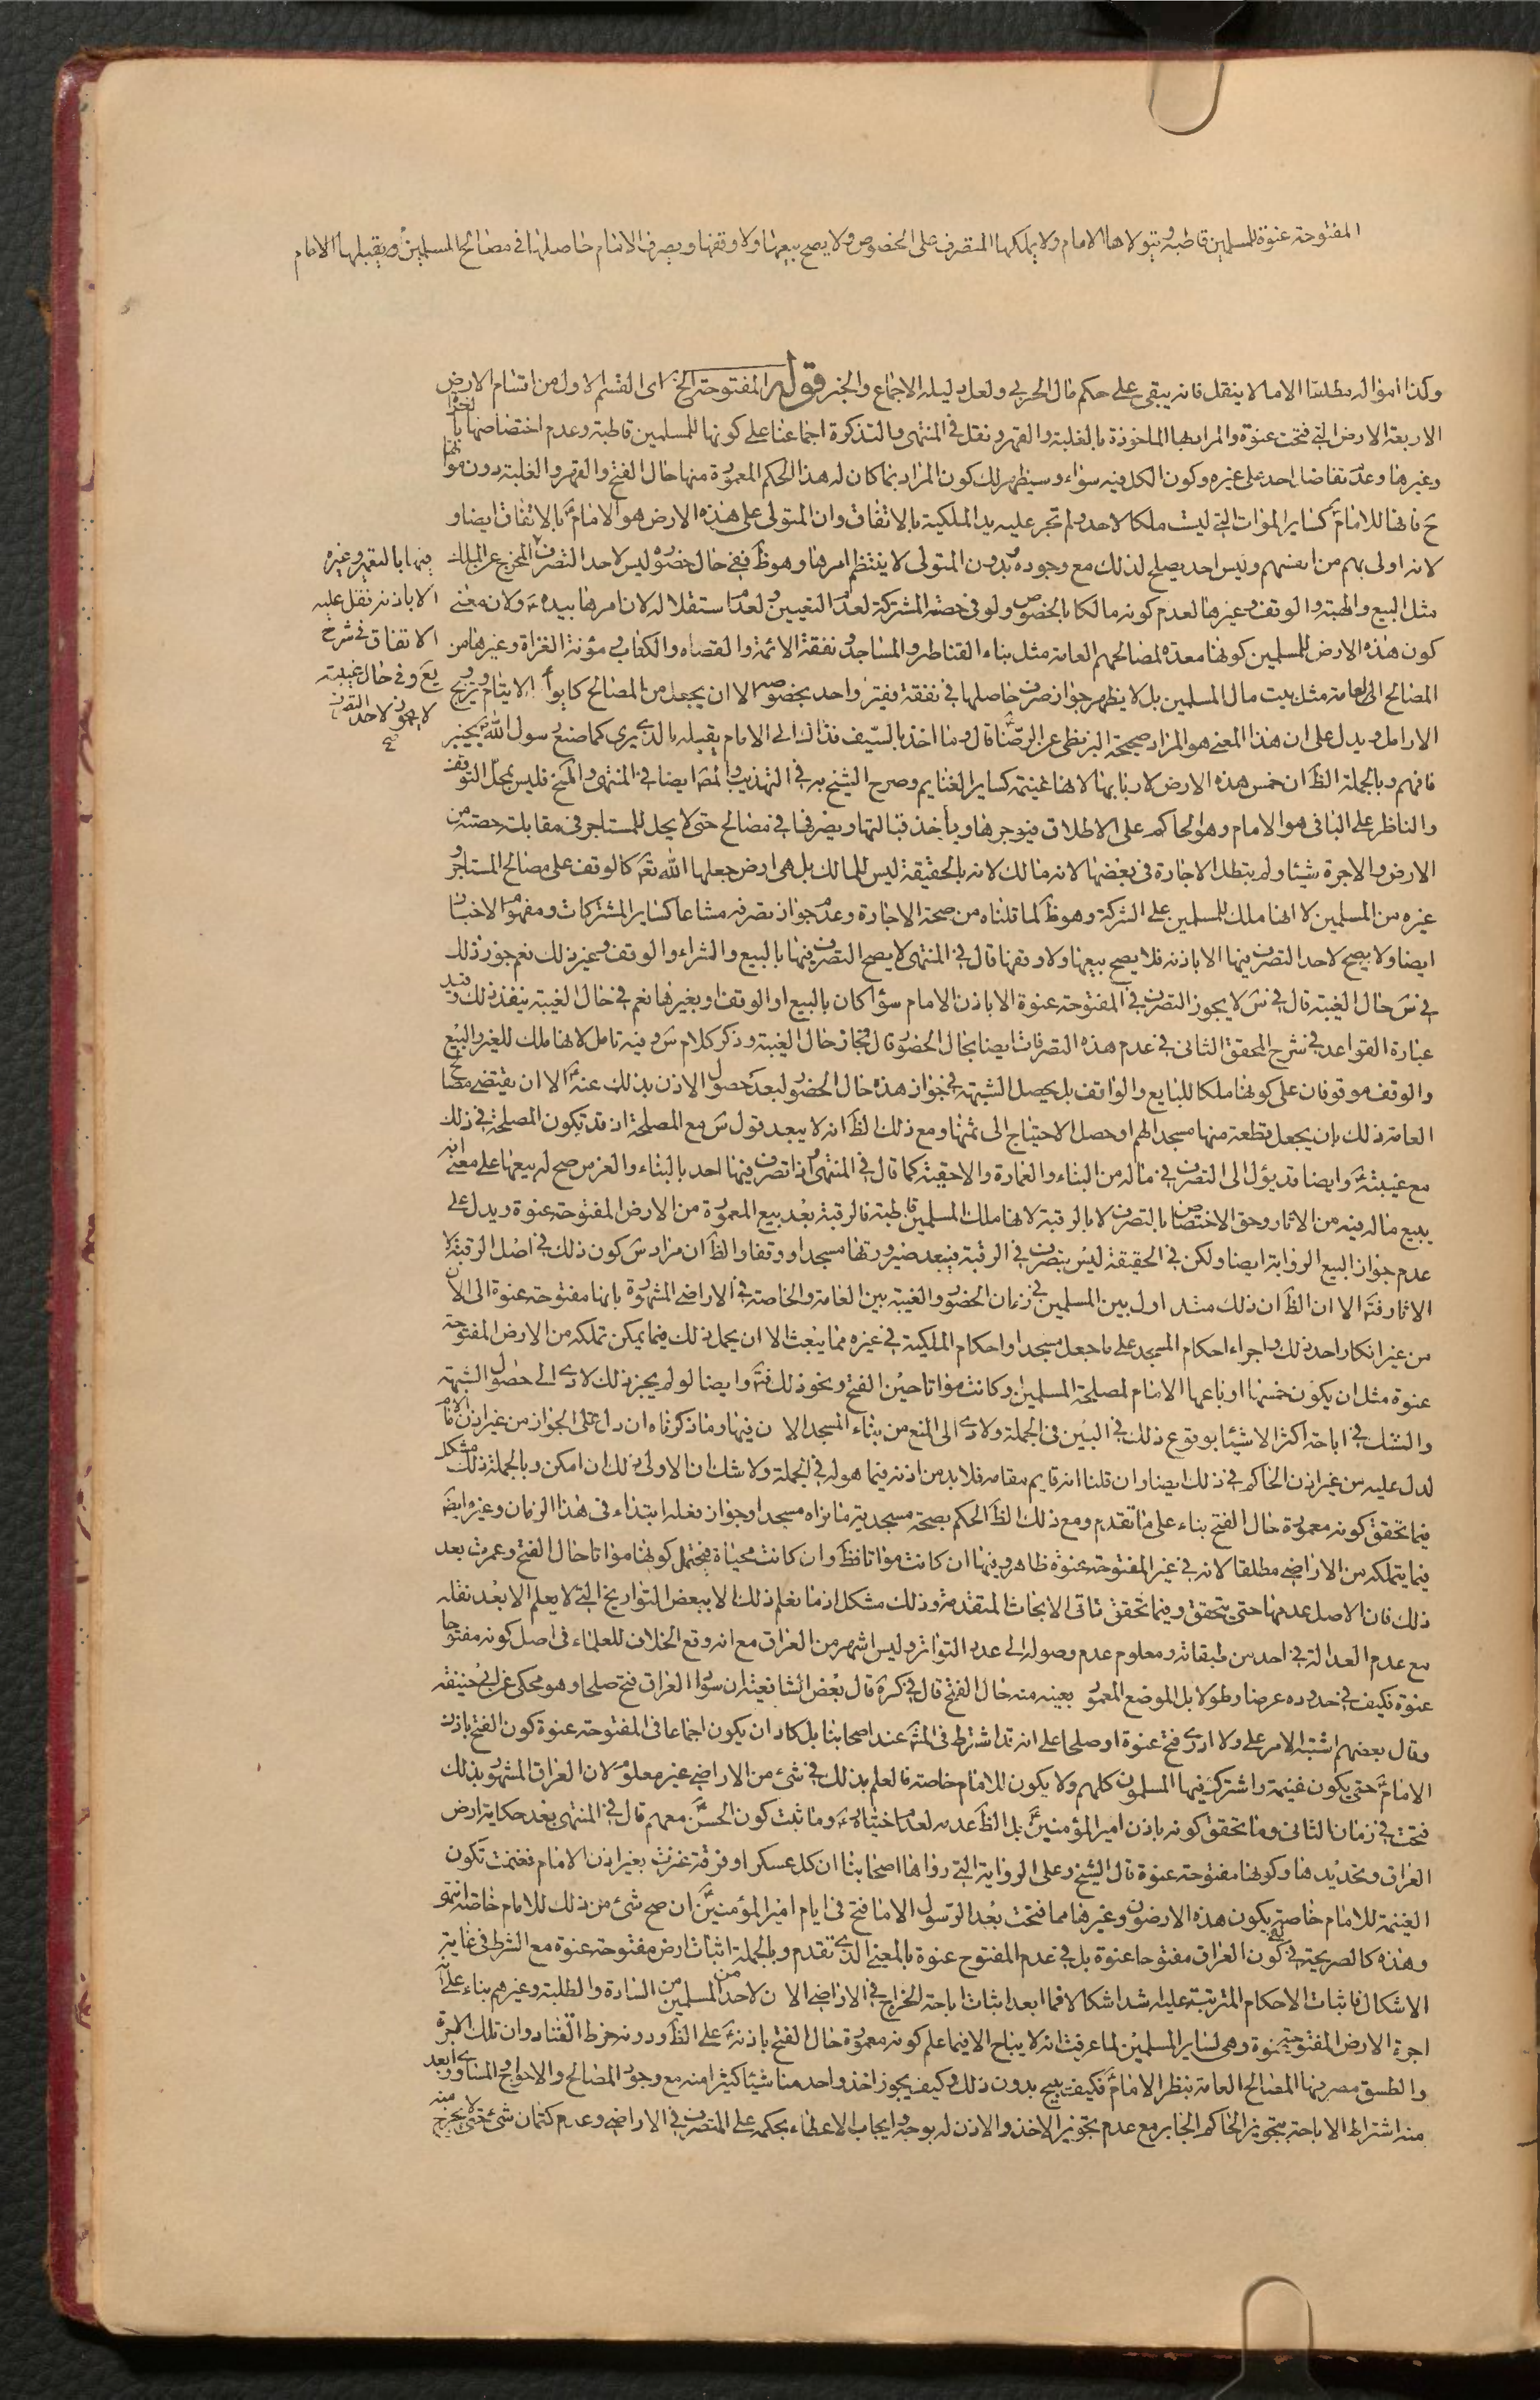 المفتوحة عنوة للمسلمين قاطبة ويتولاها الامام ولا يملكها المتصرف على الخصوص ولا يصح بيعها ولا وقفها ويصرف الامام حاصلها في مصالح المسلمين ويقبلها الامام
وكذا امواله مطلقا الا ما لا ينقل فانه يبقى على حكم مال الحربي ولعل دليله الاجماع والخبر قوله المفتوحة الخ اى القسم الاول من اقسام الارض
الاربعة الارض التى فتحت عنوة والمراد بها الماخوذة بالغلبة والقهر ونقل في المنتهى والتذكرة اجماعنا على كونها للمسلمين قاطبة وعدم اختصاصها
وغيرها وعدم تفاضل احد على غيره وكون الكل فيه سواء وسيظهر لك كون المراد بما كان له هذا الحكم المعمورة منها حال الفتح والقهر والغلبة دون مواتها
ح فانها للامام كساير الموات التى ليست ملكا لاحد ولم تجر عليه يد الملكية بالاتفاق وان المتولى على هذه الارض هو الامام بالاتفاق ايضا و
لانه اولى بهم من انفسهم وليس احد يصلح لذلك مع وجوده وبدون المتولى لا ينتظم امرها وهو ظ ففى حال حضوره ليس لاحد التصرف المخرج عن الملك
فيها بالتعمير وغيره
الا باذنه نقل عليه
الاتفاق في شرح
يع وفي حال غيبته
لا يجوز لاحد التصرف
مثل البيع والهبة والوقف وغيرها لعدم كونه مالكا بالخصوص ولو في حصته المشتركة لعدم التعيين ولعدم استقلاله لان امرها بيده ولان معنى
كون هذه الارض للمسلمين كونها معدة لمصالحهم العامة مثل بناء القناطر والمساجد ونفقة الائمة والقضاة والكتاب ومؤنة الغزاة وغيرها من
المصالح العامة مثل بيت مال المسلمين بل لا يظهر جواز صرف حاصلها في نفقة فقير واحد بخصوصه الا ان يجعل من المصالح كايواء الايتام وتزويج
الارامل ويدل على ان هذا المعنى هو المراد صحيحة البزنطى عن الرضا قال وما اخذ بالسيف فذاك الى الامام يقبله بالذى يرى كما صنع رسول الله بخيبر
فافهم وبالجملة الظ ان خمس هذه الارض لاربابها لانها غنيمة كساير الغنايم وصرح الشيخ به في التهذيب والمص ايضا في المنتهى فليس محل التوقف
والناظر على الباقى هو الامام وهو الحاكم على الاطلاق فيوجرها ويأخذ قبالتها ويصرفها في مصالح حتى لا يحل للمستاجر في مقابلة حصته من
الارض والاجرة شيئا ولم يبطل الاجارة في بعضها لانه مالك لانه بالحقيقة ليس للمالك بل هى ارض جعلها الله تع كالوقف على مصالح المستاجر و
غيره من المسلمين لا انها ملك للمسلمين على الشركة وهو ظ لما قلناه من صحة الاجارة وعدم جواز تصرفه مشاعا كساير المشتركات ومفهوم الاخبار
ايضا ولا يصح لاحد التصرف فيها الا باذنه فلا يصح بيعها ولا وقفها قال في المنتهى لا يصح التصرف فيها بالبيع والشراء والوقف وغير ذلك نعم جوز ذلك
في س حال الغيبة قال في س لا يجوز التصرف في المفتوحة عنوة الا باذن الامام سواء كان بالبيع او الوقف او بغيرها نعم في حال الغيبة ينفذ ذلك وقيد
عبارة القواعد في شرح المحقق الثانى في عدم هذه التصرفات ايضا بحال الحضور قال فجاز حال الغيبة وذكر كلام س وفيه تامل لانها ملك للغير والبيع
والوقف موقوفان على كونها ملكا للبايع والواقف بل يحصل الشبهة في جواز هذه حال الحضور لبعد حصول الاذن بذلك عنه الا ان يقتضى مصالح
العامة ذلك بان يجعل قطعة منها مسجدا لهم او حصل الاحتياج الى ثمنها ومع ذلك الظ انه لا يبعد قول س مع المصلحة اذ قد تكون المصلحة في ذلك
مع غيبته وايضا قد يؤل الى التصرف في ماله من البناء والعمارة والاحقية كما قال في المنتهى اذا تصرف فيها احد بالبناء والغرس صح له بيعها على معنى انه
يبيع ماله فيه من الاثار وحق الاختصاص بالتصرف لا بالرقبة لانها ملك المسلمين قاطبة فالرقبة بعد بيع المعمورة من الارض المفتوحة عنوة ويدل على
عدم جواز البيع الرواية ايضا ولكن في الحقيقة ليس بتصرف في الرقبة فيبعد صيرورتها مسجدا ووقفا والظ ان مراد س كون ذلك في اصل الرقبة لا
الاثار فت الا ان الظ ان ذلك متداول بين المسلمين في زمان الحضور والغيبة بين العامة والخاصة في الاراضى المشهورة بانها مفتوحة عنوة الى الان
من غير انكار احد ذلك واجراء احكام المسجد على ما جعل مسجدا واحكام الملكية في غيره مما يبعث الا ان يحمل ذلك فيما يمكن تملكه من الارض المفتوحة
عنوة مثل ان يكون خمسها او باعها الامام لمصلحة المسلمين وكانت مواتا حين الفتح ونحو ذلك فت وايضا لو لم يجز ذلك لادى الى حصول الشبهة
والشك في اباحة اكثر الاشياء بوقوع ذلك في البين في الجملة ولادى الى المنع من بناء المسجد الان فيها وما ذكرناه ان دل على الجواز من غير اذن الامام
لدل عليه من غير اذن الحاكم في ذلك ايضا وان قلنا انه قايم مقامه فلا بد من اذنه فيما هو له في الجملة ولا شك ان الاولى ذلك ان امكن وبالجملة ذلك مشكل
فيما تحقق كونه معمورة حال الفتح بناء على ما تقدم ومع ذلك الظ الحكم بصحة مسجدية ما نراه مسجدا وجواز فعله ابتداء في هذا الزمان وغيره ايض
فيما يتملكه من الاراضى مطلقا لانه في غير المفتوحة عنوة ظاهر وفيها ان كانت مواتا فظ وان كانت محياة فيحتمل كونها مواتا حال الفتح وعمرت بعد
ذلك فان الاصل عدمها حتى يتحقق وفيما تحقق تاتى الابحاث المتقدمة وذلك مشكل اذ ما نعلم ذلك الا ببعض التواريخ التى لا يعلم الا بعد نقله
مع عدم العدالة في احد من طبقاته ومعلوم عدم وصوله الى عدد التواتر وليس اشهر من العراق مع انه وقع الخلاف للعلماء في اصل كونه مفتوحا
عنوة فكيف في حدوده عرضا وطولا بل الموضع المعمور بعينه منه حال الفتح قال في كرة قال بعض الشافعية ان سواد العراق فتح صلحا وهو محكى عن ابى حنيفة
وقال بعضهم اشتبه الامر على ولا ادرى فتح عنوة او صلحا على انه قد اشترط في المشهور عند اصحابنا بل كاد ان يكون اجماعا في المفتوحة عنوة كون الفتح باذن
الامام حتى يكون غنيمة واشترك فيها المسلمون كلهم ولا يكون للامام خاصة فالعلم بذلك في شئ من الاراضى غير معلوم لان العراق المشهور بذلك
فتحت في زمان الثانى وما تحقق كونه باذن امير المؤمنين بل الظ عدمه لعدم اختياره وما ثبت كون الحسن معهم قال في المنتهى بعد حكاية ارض
العراق وتحديدها وكونها مفتوحة عنوة قال الشيخ وعلى الرواية التى رواها اصحابنا ان كل عسكر او فرقة غزت بغير اذن الامام فغنمت تكون
الغنيمة للامام خاصة يكون هذه الارضون وغيرها مما فتحت بعد الرسول الا ما فتح في ايام امير المؤمنين ان صح شئ من ذلك للامام خاصة انتهى
وهذه كالصريحة في كون العراق مفتوحا عنوة بل في عدم المفتوح عنوة بالمعنى الذى تقدم وبالجملة اثبات ارض مفتوحة عنوة مع الشرط في غاية
الاشكال فاثبات الاحكام المترتبة عليه اشد اشكالا فما ابعد اثبات اباحة الخراج في الاراضى الان لاحد من المسلمين من السادة والطلبة وغيرهم بناء على انه
اجرة الارض المفتوحة عنوة وهى لساير المسلمين لما عرفت انه لا يباح الا فيما علم كونه معمورة حال الفتح باذنه على الظ ودونه خرط القتاد وان تلك الاجرة
والطسق مصرفها المصالح العامة بنظر الامام فكيف يبيح بدون ذلك وكيف يجوز اخذ واحد منا شيئا كثيرا منه مع وجود المصالح والاحوج المساوى وابعد
منه اشتراط الاباحة بتجويز الحاكم الجاير مع عدم تجويز الاخذ والاذن له بوجه وايجاب الاعطاء بحكمه على المتصرف في الاراضى وعدم كتمان شئ حتى لا يخرج منه